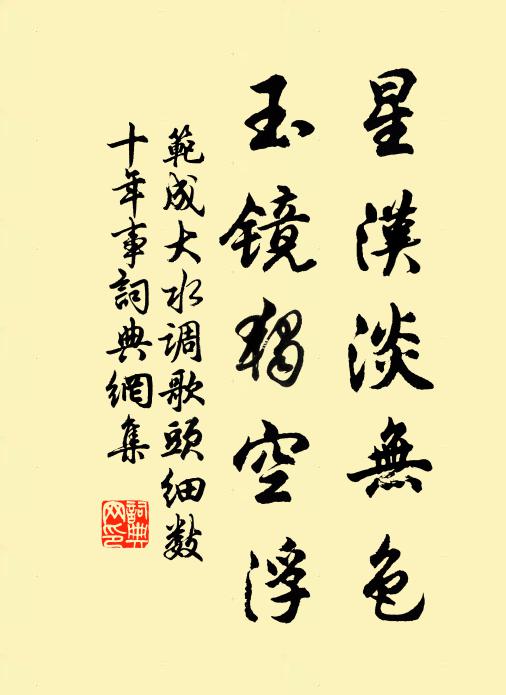 星漢淡無色
玉镜獨空浮
範成大水调歌頭細数
十年事詞典網集
詞典网印